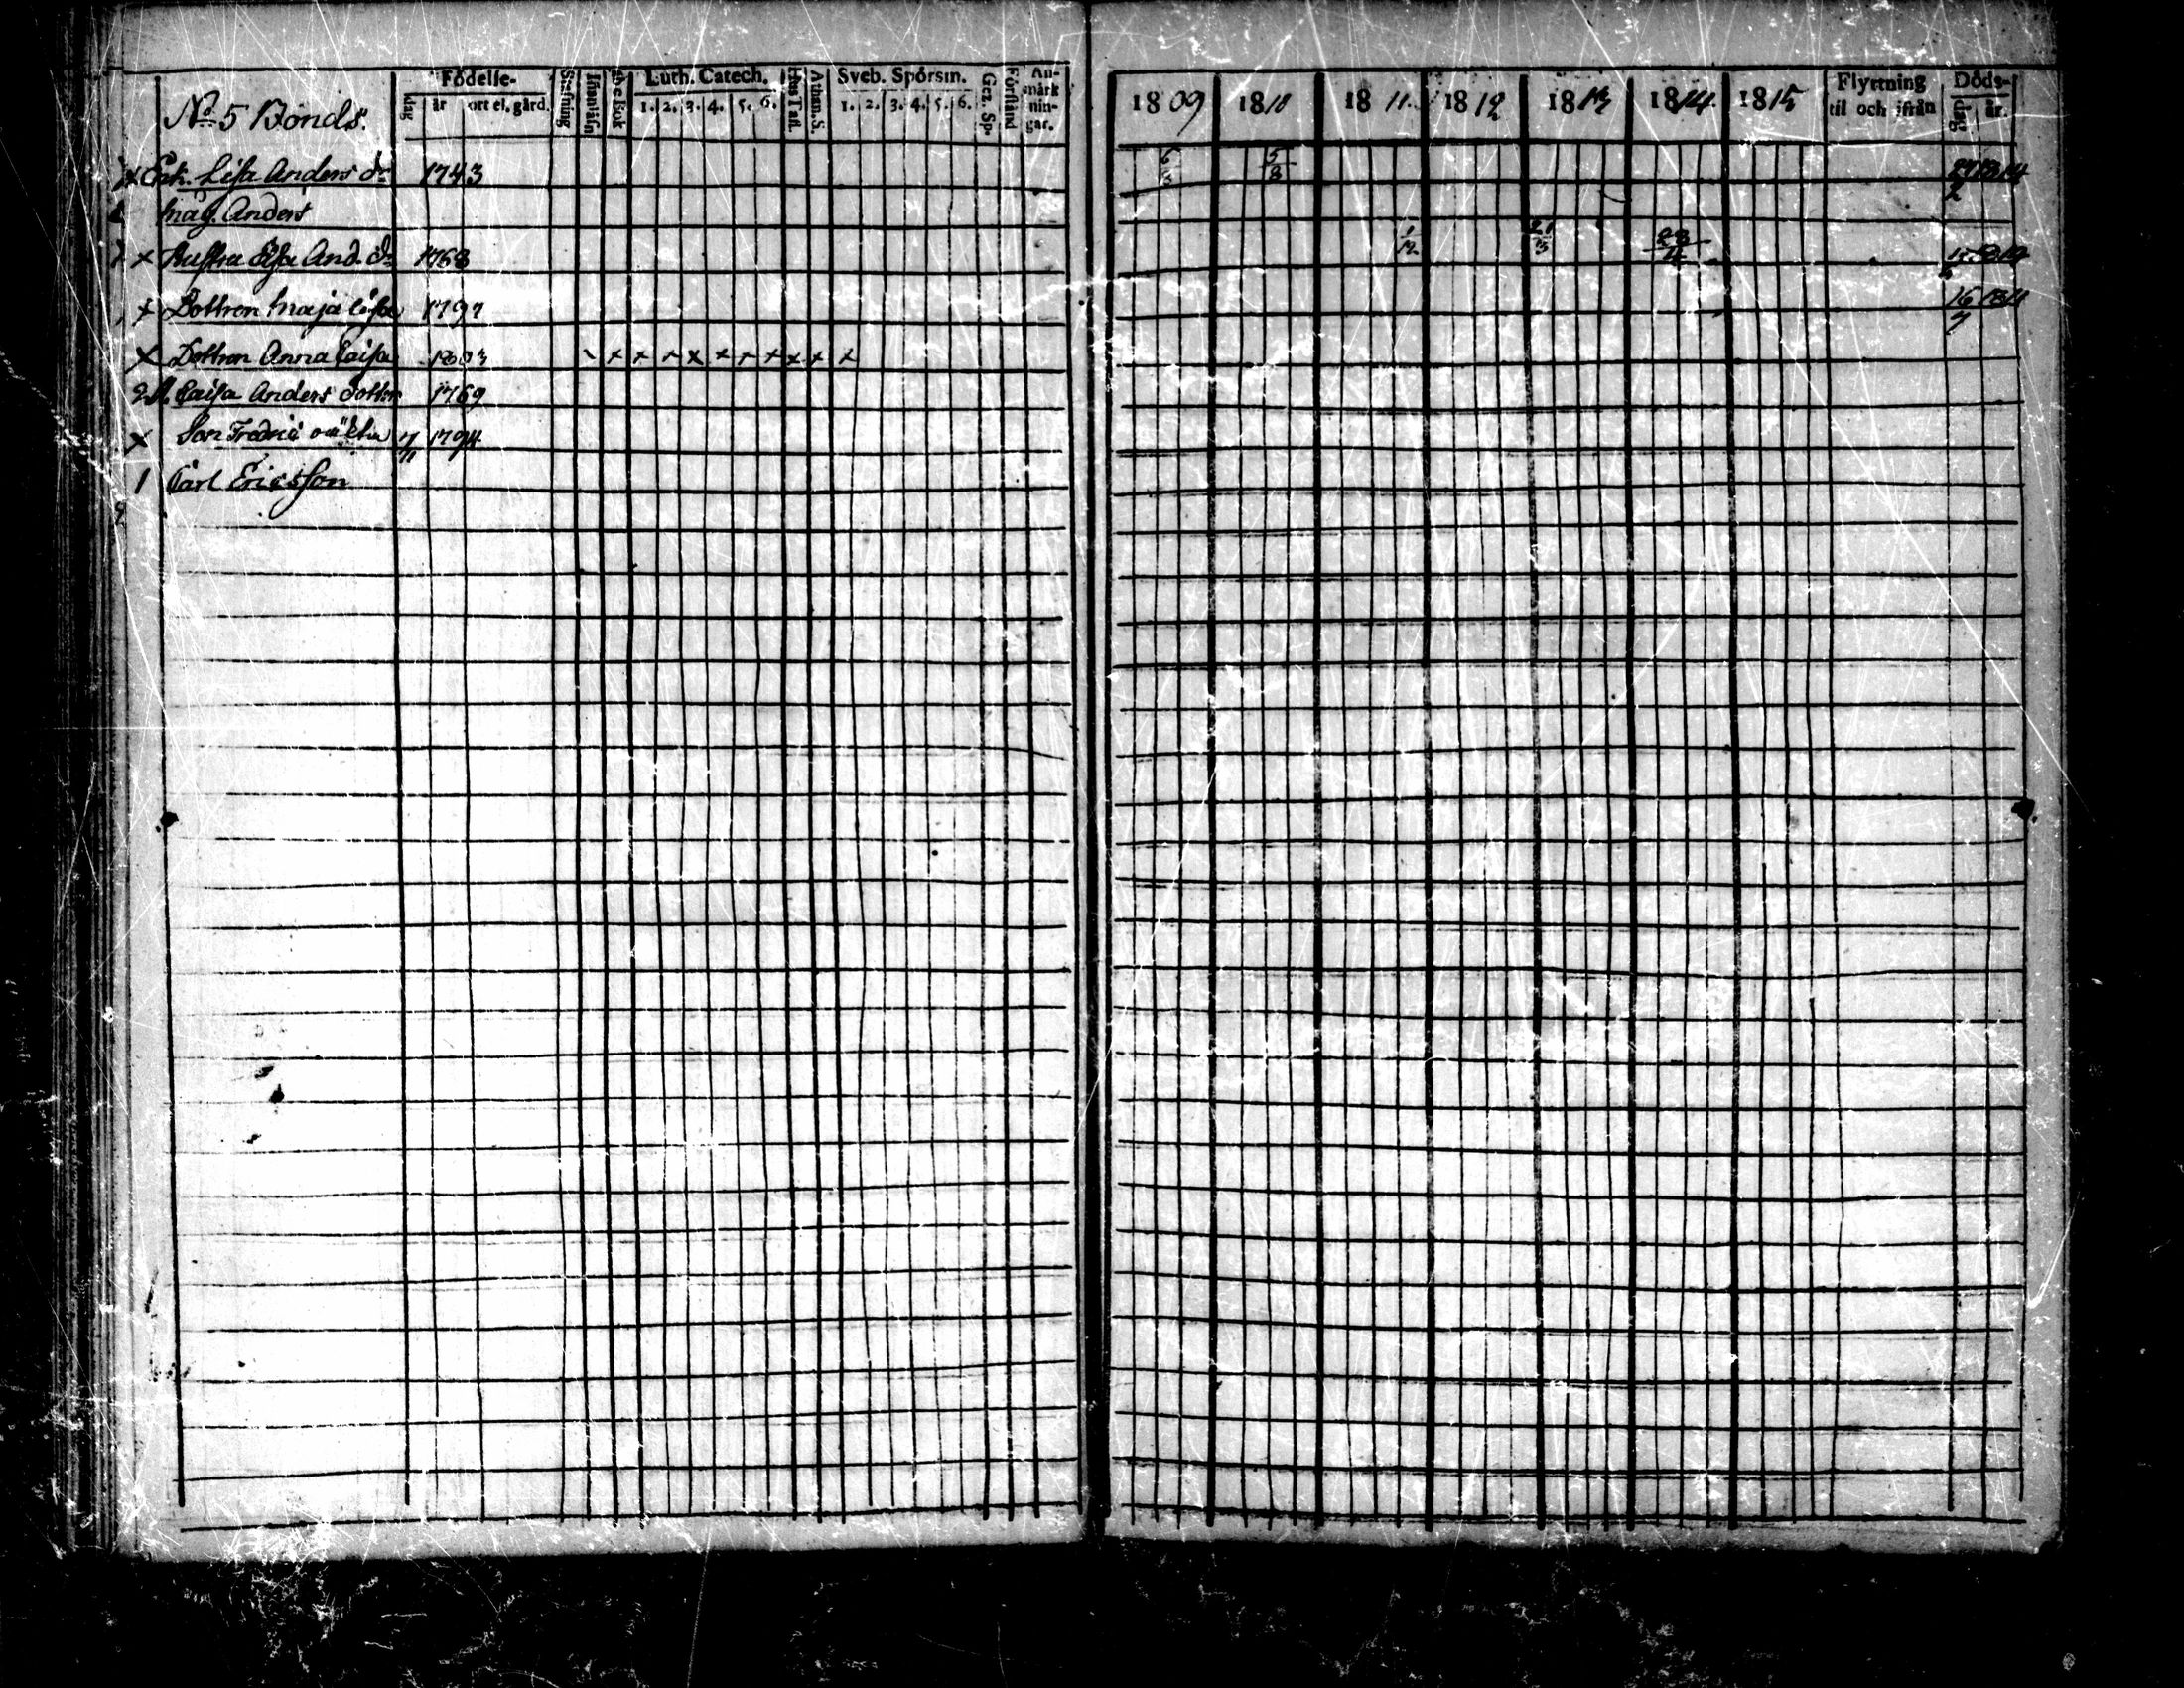 No 5 Bonds.
Födelse-
dag
år
ort el. gård.
Stafning
Abc Bok
Luth. Catech.
1. 2. 3. 4. 5. 6.
Hus Tafl.
Athan. S.
Sveb. Spörsm.
1. 2. 3. 4. 5. 6.
Gez. Sp.
Förstånd
An-
märk
nin-
gar.
1809 1810 1811. 1812 1813 1814 1815
Flyttning
til och ifrån
Döds-
dag
år.
x Enk. Lisa Anders dr 1743 6/8 5/8
Måg. Anders
x Hustru And. dr 1768 1/12 21/3 23/4
x Dottren Maja Caisa 1797 16/7
x Dottren Anna Caisa 1803 x x x x x x x x x x
Caisa Anders dotter 1769
x Son Fredric 1794
1 Carl Ericsson